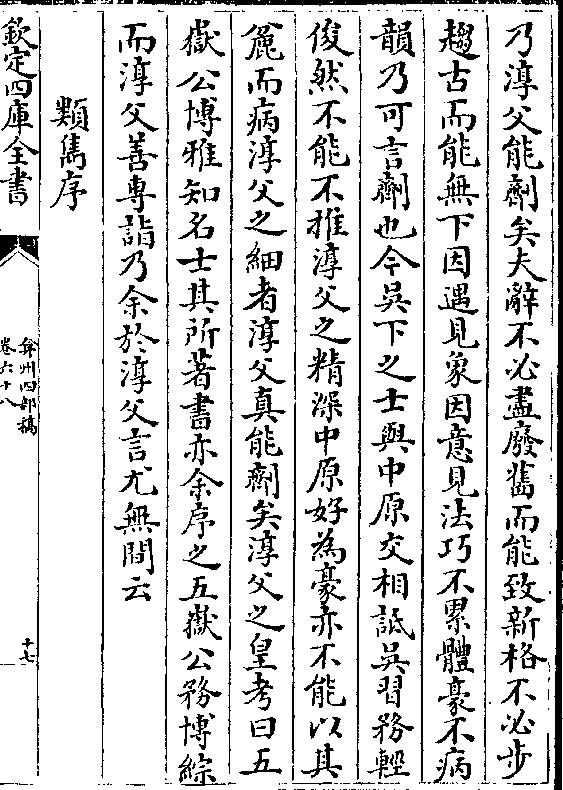 乃淳父能劑矣夫辭不必盡廢舊而能致新格不必步
趨古而能無下因遇見象因意見法巧不累體豪不病
韻乃可言劑也今吳下之士與中原交相詆吳習務輕
俊然不能不推淳父之精深中原好為豪亦不能以其
麄而病淳父之細者淳父真能劑矣淳父之皇考曰五
嶽公博雅知名士其所著書亦余序之五嶽公務博綜
而淳父善專詣乃余於淳父言尤無間云
類雋序
欽定四庫全書
弇州四部稿
卷六十八
十七